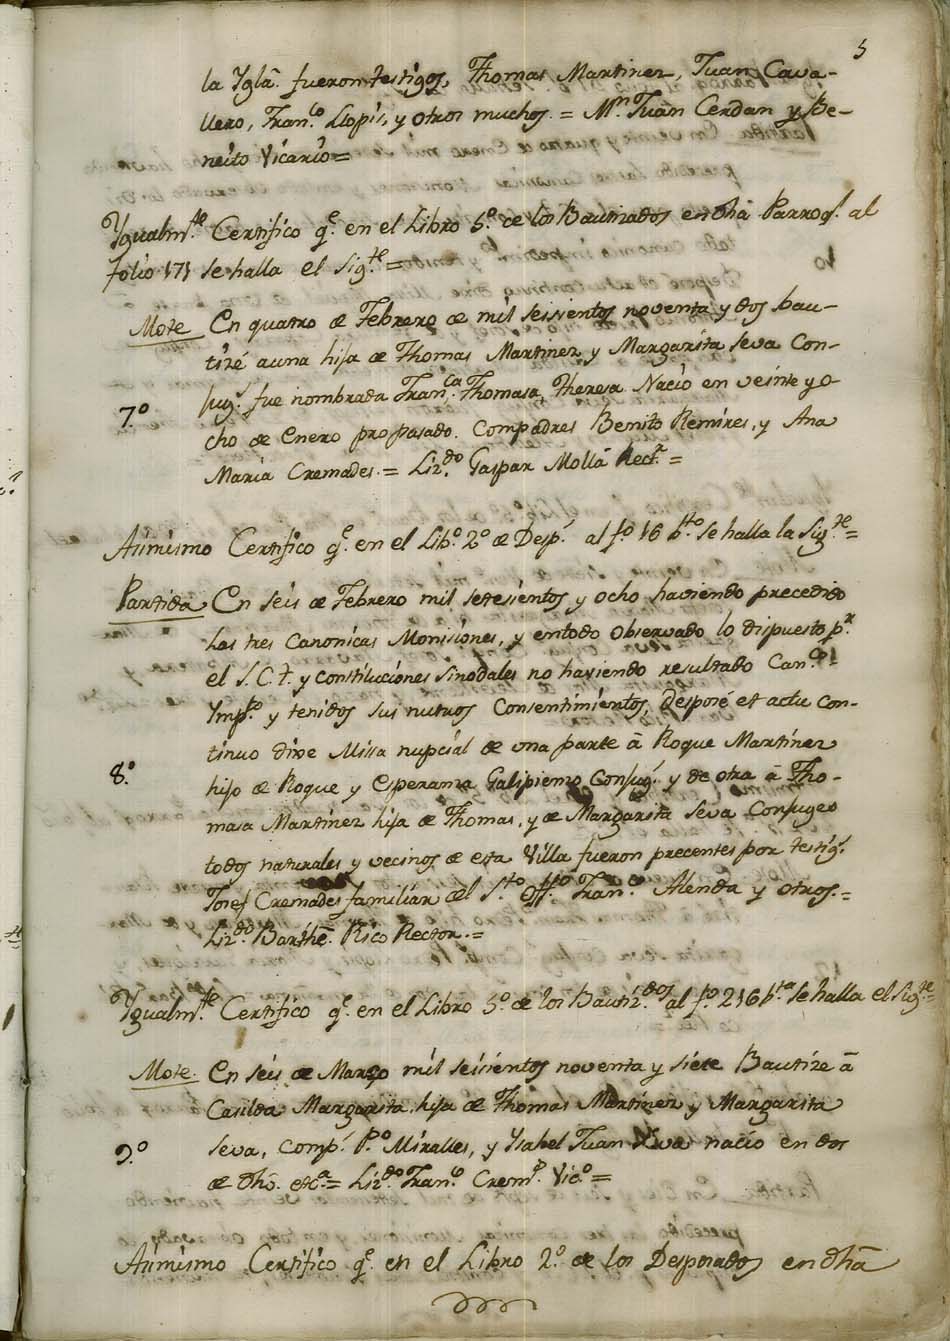 5
la Yglã. fueron testigos, Thomas Martinez, Juan Cava-
llero, Fran.co Llopis, y otros muchos. = Mn. Juan Cerdan y Be-
neito Vicario =
Ygualm.te Certifico q.e en el Libro 5.o de los Bautizados en dhã Parroq.l al
folio 171 se halla el sig.te =
Mote En quatro de Febrero de mil seisientos noventa y dos bau-
tizé a una hija de Thomas Martinez y Margarita Seva Con-
7.o jug.s fue nombrada Fran.ca Thomasa, Theresa. Nacio en veinte y o-
cho de Enero propasado. Compadres Benito Remires, y Ana
Maria Cremades. = Liz.do Gaspar Mollá Rect.r =
Asimismo Certifico q.e en el Lib.o 2.o de Desp.s al f.o 16 b.to se halla la sig.te =
Partida En seis de Febrero mil setesientos y ocho haviendo precedido
las tres Canonicas Monisiones, y en todo observado lo dispuesto p.r
el S.C.T. y constituciones sinodales no haviendo resultado Can.co
Ymp.to y tenidos sus mutuos Consentimientos, Desposé et actu con-
tinuo dixe Missa nupcial de una parte â Roque Martinez
8.o hijo de Roque y Esperansa Galipienso Conjug.s y de otra â Tho-
masa Martinez hija de Thomas, y de Margarita Seva Conjuges
todos naturales y vecinos de esta Villa fueron precentes por testig.s
Josef Cremades familiar del S.to Off.o Fran.co Alenda y otros. =
Liz.do Barthẽ. Rico Rector. =
Ygualm.te Certifico q.e en el Libro 5.o de los Bautiz.dos al f.o 216 b.ta se halla el sig.te =
Mote En seis de Marzo mil seisientos noventa y siete Bautize â
Casilda Margarita hija de Thomas Martinez y Margarita
9.o Seva, Comp.s P.o Miralles, y Ysabel Juan nacio en dos
de dho. etc.a = Liz.do Fran.co Crem.s Vic.o =
Asimismo Certifico q.e en el Libro 2.o de los Desposados en dhã